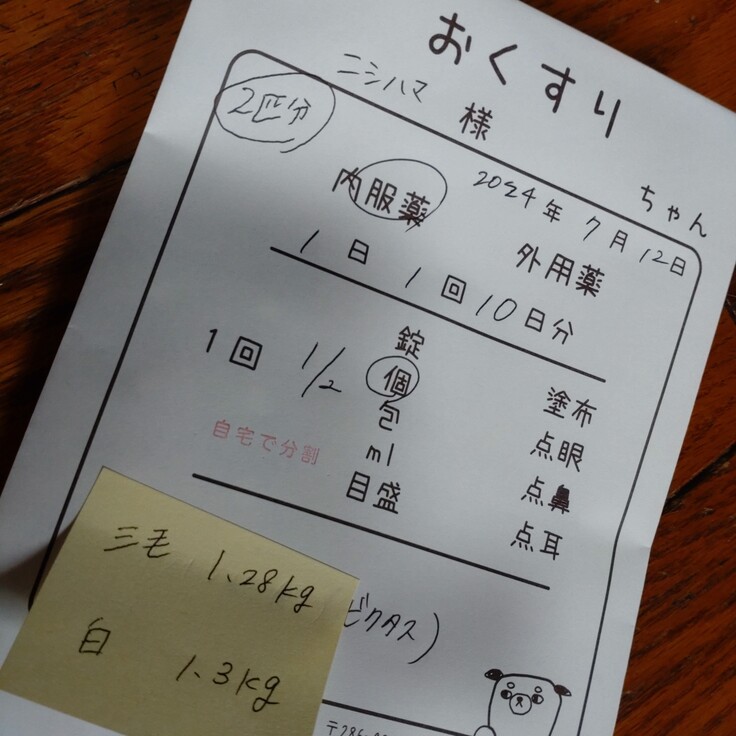 おくすり
ニシハマ 様
ちゃん
2匹分
内服薬 外用薬
2024年 7月 12日
1日 1回 10日分
1回 1/2
錠
個
包
ml
目盛
塗布
点眼
点鼻
点耳
自宅で分割
三毛 1.28kg
白 1.3kg
ビクタス)